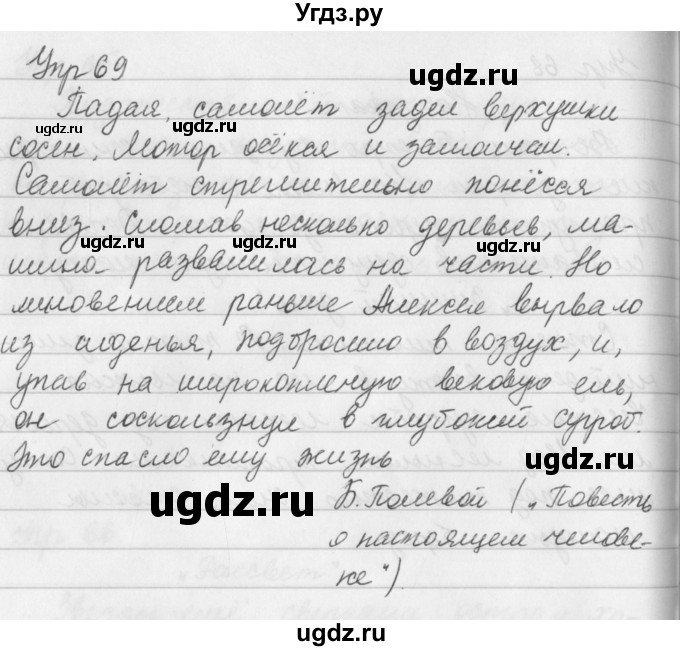 Угдз.ру
Упр 69
ugdz.ru
Падая, самолёт задел верхушки
ugdz.ru ugdz.ru
сосен. Мотор осёкся и замолчал.
Самолёт стремительно понёсся
вниз. Сломав несколько деревьев, ма-
ugdz.ru ugdz.ru ugdz.ru
шина развалилась на части. Но
мгновением раньше Алексея вырвало
из сиденья, подбросило в воздух, и,
упав на широкоплечую вековую ель,
он соскользнул в глубокий сугроб.
Это спасло ему жизнь
ugdz.ru
Б. Полевой ("Повесть
ugdz.ru
о настоящем челове-
ке").
ugdz.ru
ugdz.ru